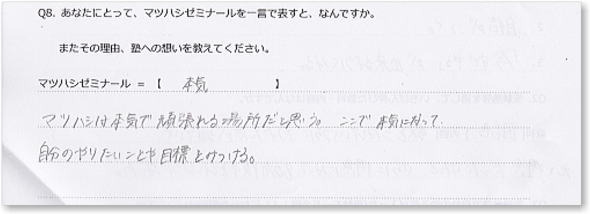 Q8. あなたにとって、マツハシゼミナールを一言で表すと、なんですか。
またその理由、塾への想いを教えてください。
マツハシゼミナール = 【 本気 】
マツハシは本気で頑張れる場所だと思う。ここで本気になって
自分のやりたいことや目標とみつける。